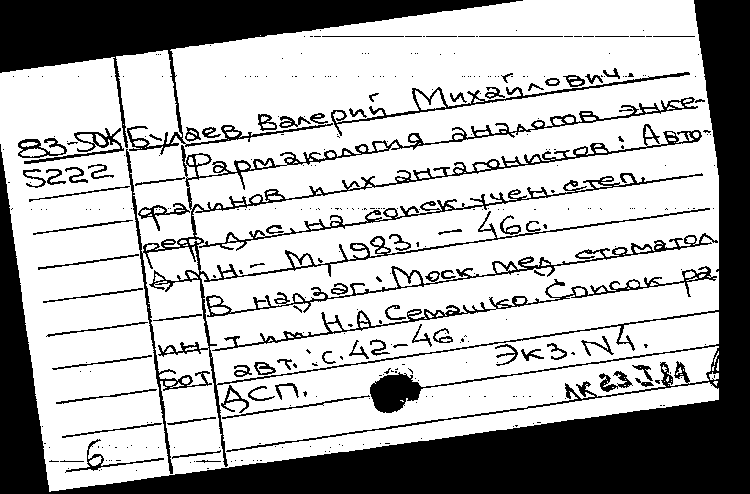 83-50К Булаев, Валерий Михайлович.
5222 Фармакология аналогов энке-
фалинов и их антагонистов: Авто-
реф. дис. на соиск. учен. степ.
Д.м.н. - М., 1983. - 46с.
В надзаг.: Моск. мед. стоматол.
ин-т им. Н.А.Семашко. Список ра-
бот авт.: с.42-46.
ДСП. Экз. N4.
ЛК 23.I.84
6